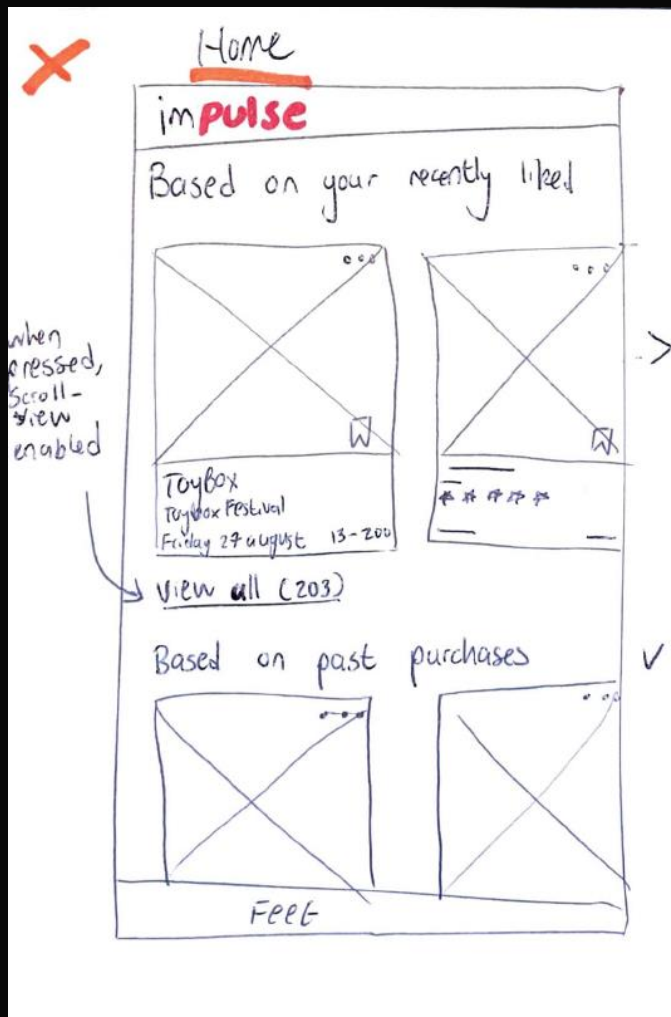 Home
impulse
Based on your recently liked
when
pressed,
scroll-
view
enabled
ToyBox
Toybox Festival
Friday 27 august 13-200
view all (203)
Based on past purchases
Feet